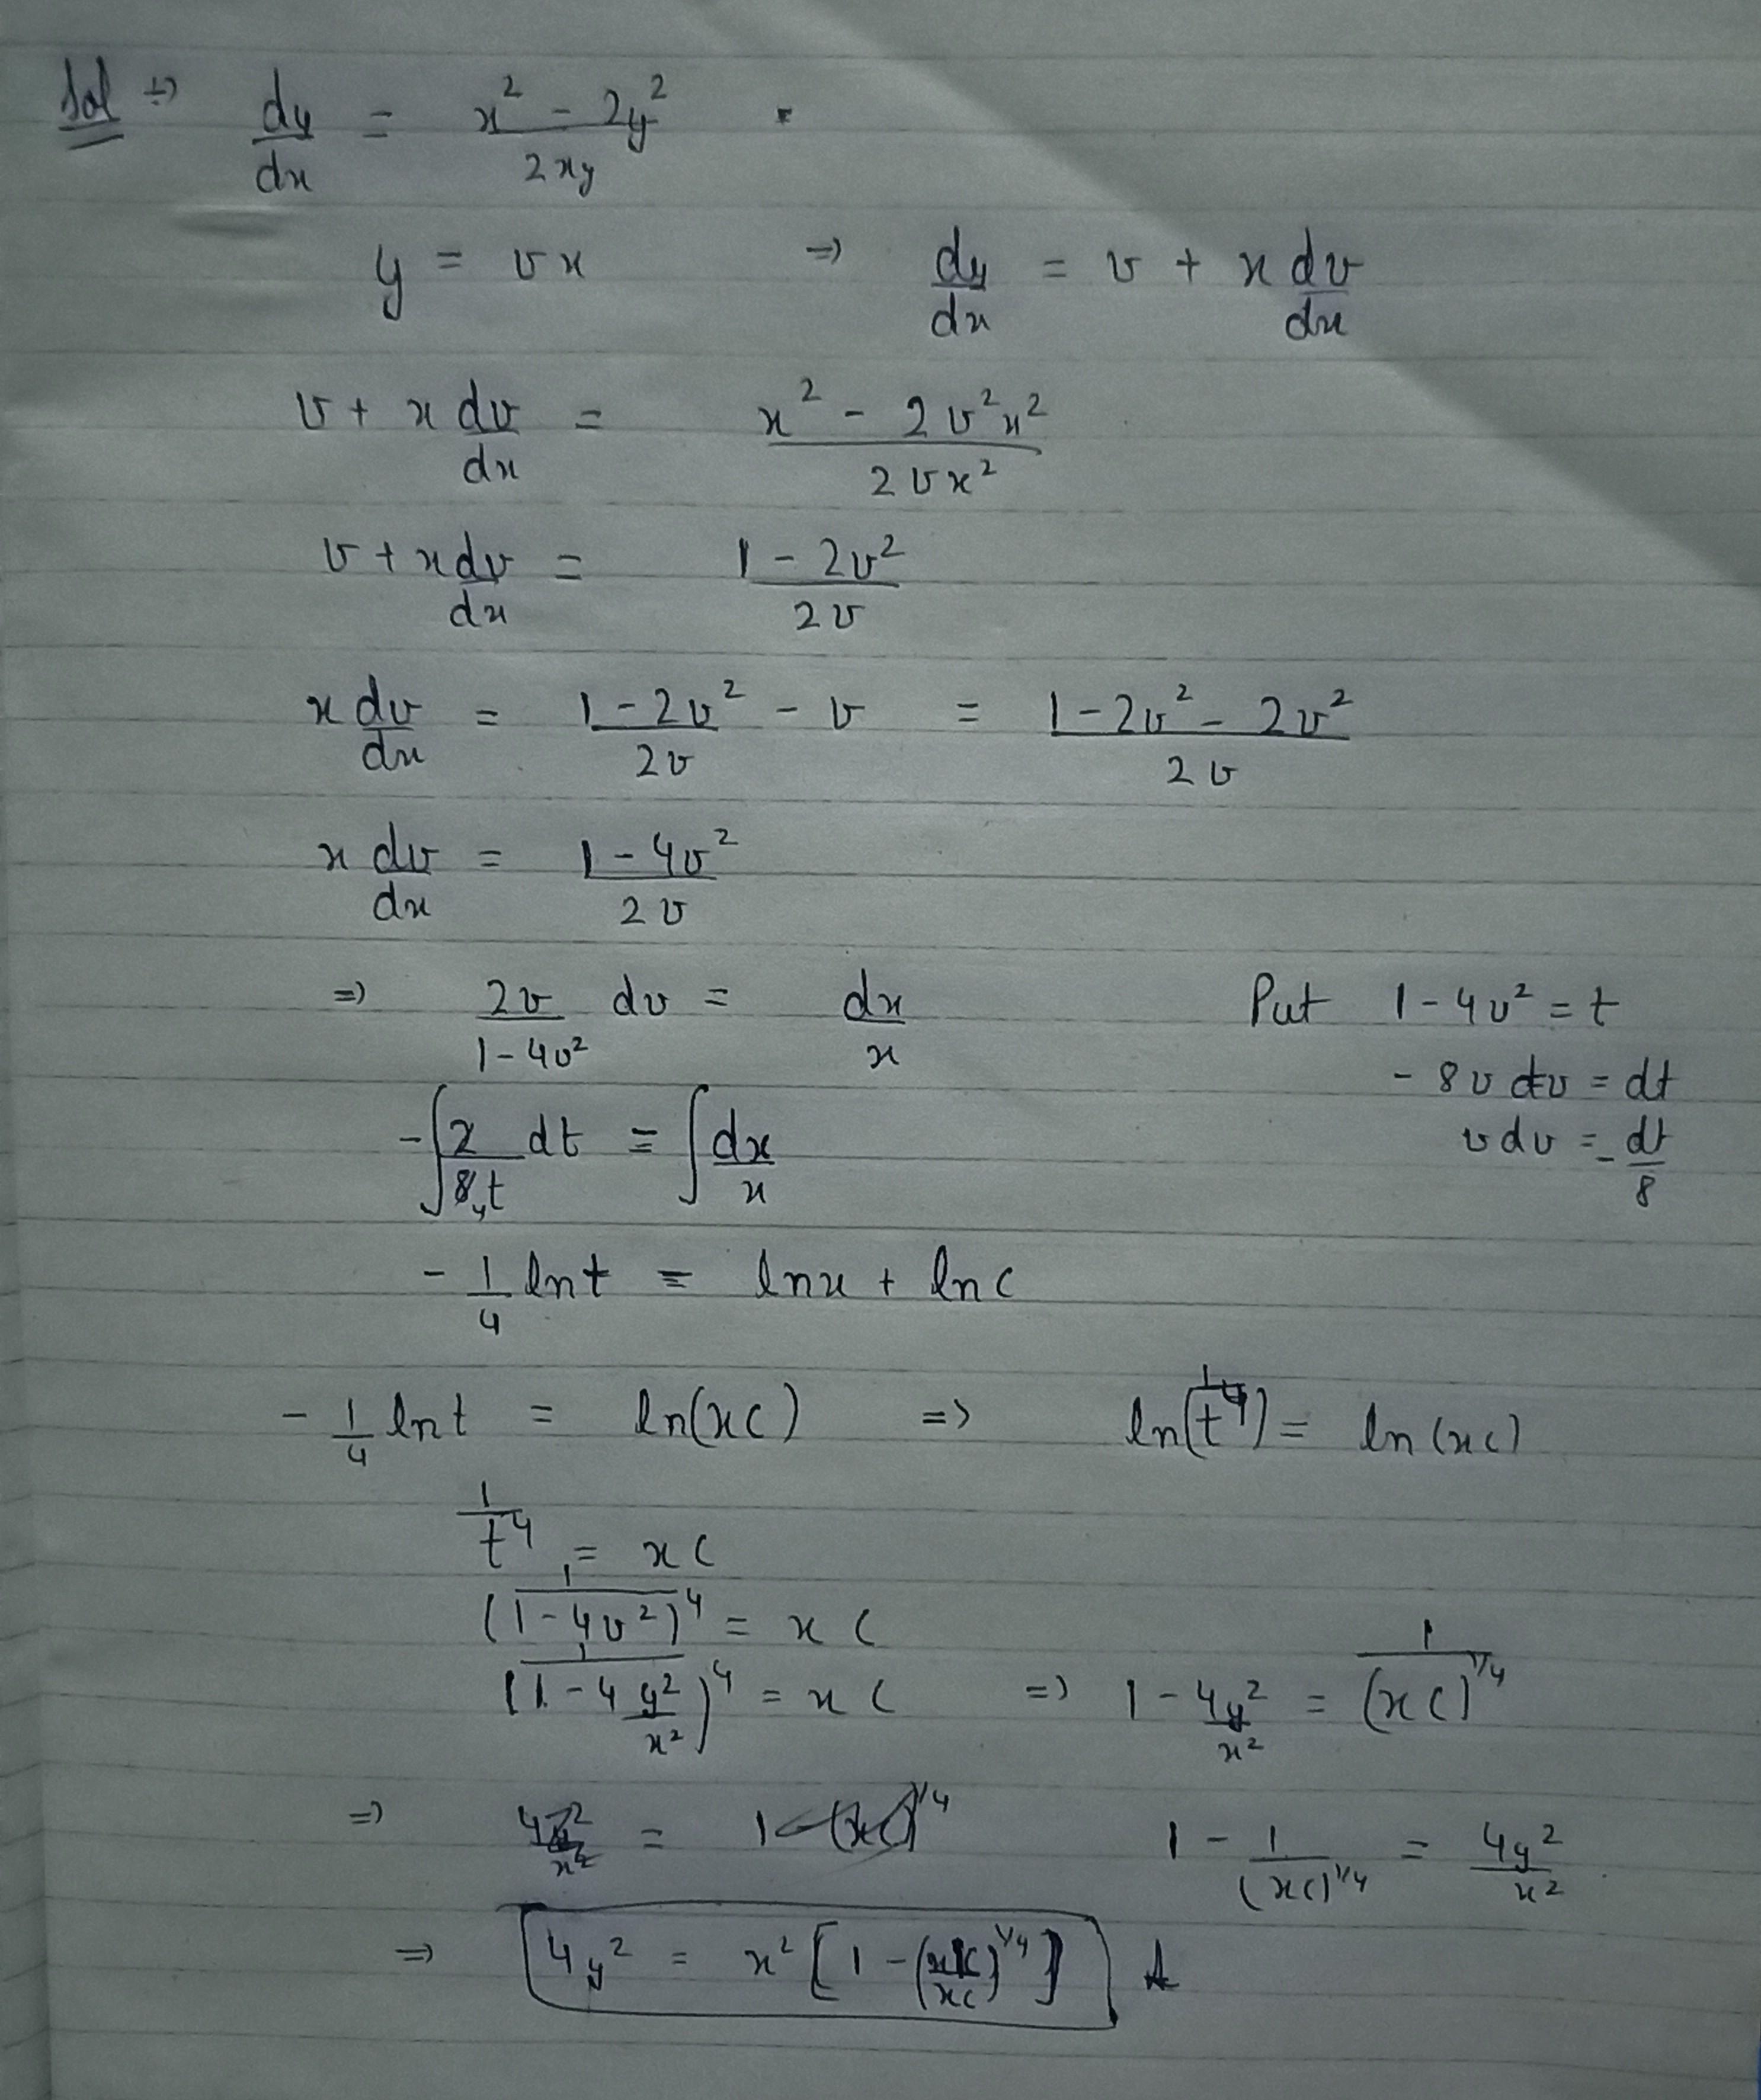 Sol ⇒ dy/dx = (x² - 2y²)/(2xy)
y = vx ⇒ dy/dx = v + x dv/dx
v + x dv/dx = (x² - 2v²x²)/(2vx²)
v + x dv/dx = (1 - 2v²)/(2v)
x dv/dx = (1 - 2v²)/(2v) - v = (1 - 2v² - 2v²)/(2v)
x dv/dx = (1 - 4v²)/(2v)
⇒ 2v/(1 - 4v²) dv = dx/x Put 1 - 4v² = t
- 8v dv = dt
-∫ 2/(8t) dt = ∫ dx/x v dv = - dt/8
- 1/4 ln t = ln x + ln c
- 1/4 ln t = ln(xc) ⇒ ln(1/t⁴) = ln(xc)
1/t⁴ = xc
1/(1 - 4v²)⁴ = xc
1/(1 - 4 y²/x²)⁴ = xc ⇒ 1 - 4y²/x² = 1/(xc)^1/4
⇒ = 1 - 1 - 1/(xc)^1/4 = 4y²/x²
⇒ 4y² = x² [1 - ( /xc)^1/4]